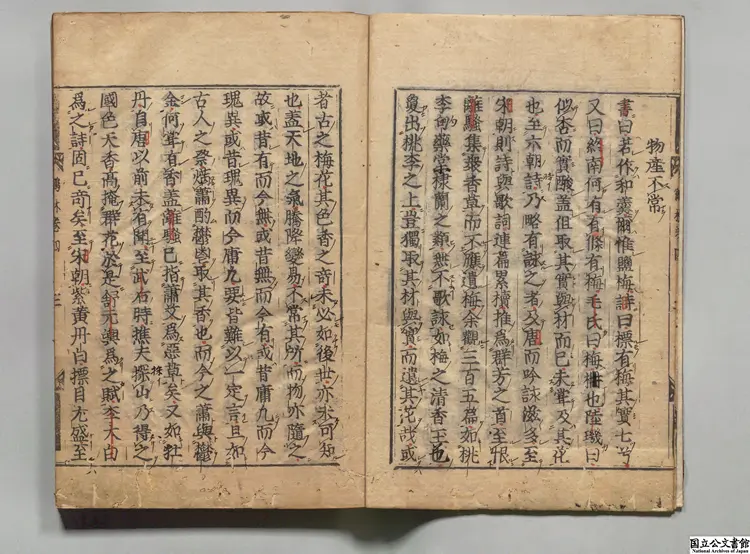 物產不常
書曰若作和羹爾惟鹽梅詩曰摽有梅其實七兮
又曰終南何有有條有梅毛氏曰梅枏也陸璣曰
似杏而實酸蓋但取其實與材而已未嘗及其花
也至六朝詩乃略有詠之者及唐而吟詠滋多至
宋朝則詩與歌詞連篇累牘推為群芳之首至恨
離騷集衆香草而不應遺梅余觀三百五篇如桃
李芍藥棠棣蘭之類無不歌詠如梅之清香玉色
夐出桃李之上豈獨取其材與實而遺其花哉或
者古之梅花其色香之奇未必如後世亦未可知
也蓋天地之氣騰降變易不常其所而物亦隨之
故或昔有而今無或昔無而今有或昔庸凡而今
瑰異或昔瑰異而今庸凡要皆難以一定言且如
古人之祭焫蕭酌鬱鬯取其香也而今之蕭與鬱
金何嘗有香蓋離騷已指蕭艾為惡草矣又如牡
丹自唐以前未有聞至武后時樵夫探山乃得之
國色天香高掩群花於是舒元輿為之賦李太白
為之詩固已奇矣至宋朝紫黃丹白摽目尤盛至
鶴林卷四
三
国立公文書館
National Archives of Japan